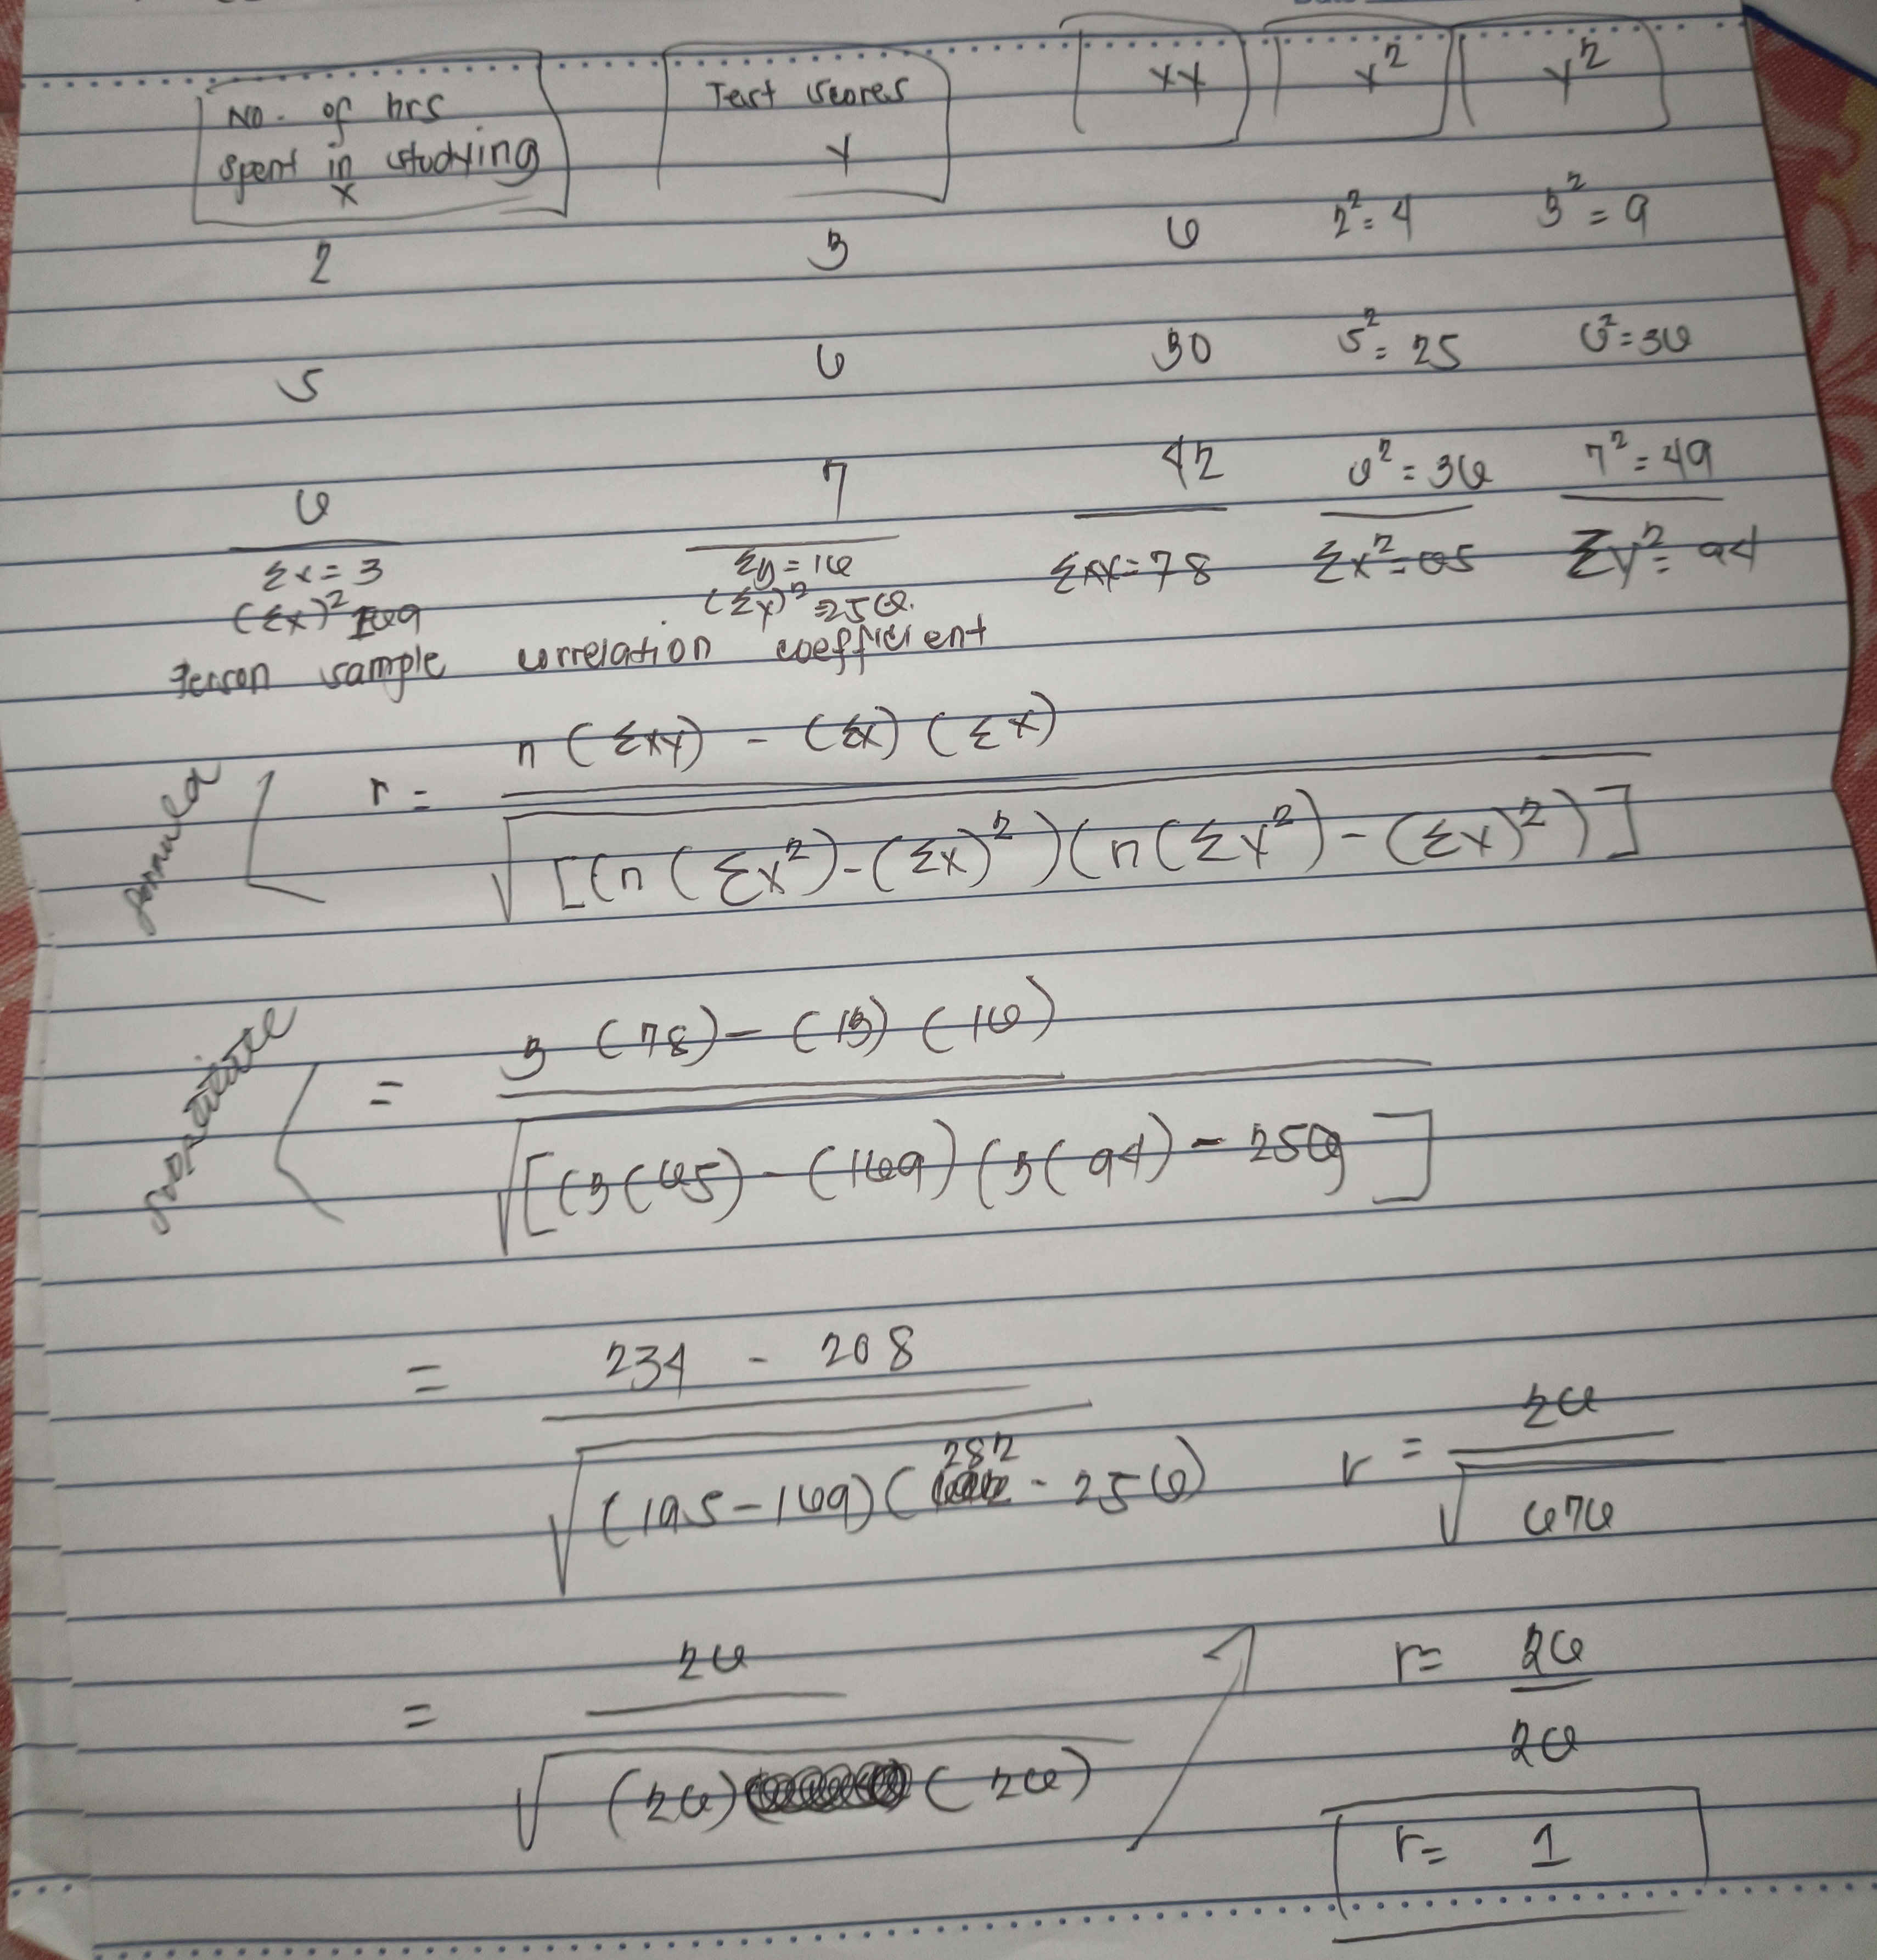 No. of hrs spent in studying x | Test scores y | xy | x² | y²
2 | 3 | 6 | 2² = 4 | 3² = 9
5 | 6 | 30 | 5² = 25 | 6² = 36
6 | 7 | 42 | 6² = 36 | 7² = 49
Σx = 3 | Σy = 16 | Σxy = 78 | Σx² = 65 | Σy² = 94
(Σx)² 169 | (Σy)² = 256.
Person sample correlation coefficient
formula r = n (Σxy) - (Σx) (Σx) / √[(n (Σx²) - (Σx)²) (n (Σy²) - (Σy)²)]
substitute = 3 (78) - (13) (16) / √[(3(65) - (169) (3(94) - 256]
= 234 - 208 / √(195 - 169) (282 - 256)
= 26 / √(26) (26)
r = 26 / √676
r = 26 / 26
r = 1